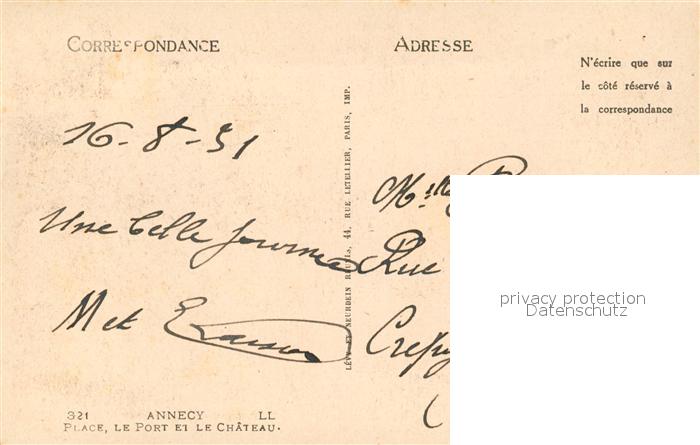 CORRESPONDANCE
ADRESSE
N'écrire que sur
le côté réservé à
la correspondance
16-8-31
Une belle journée
M et
Mlle
Rue
Crépy
LÉVY ET NEURDEIN RÉUNIS, 44, RUE LETELLIER, PARIS, IMP.
privacy protection
Datenschutz
321 ANNECY LL
PLACE, LE PORT ET LE CHÂTEAU.